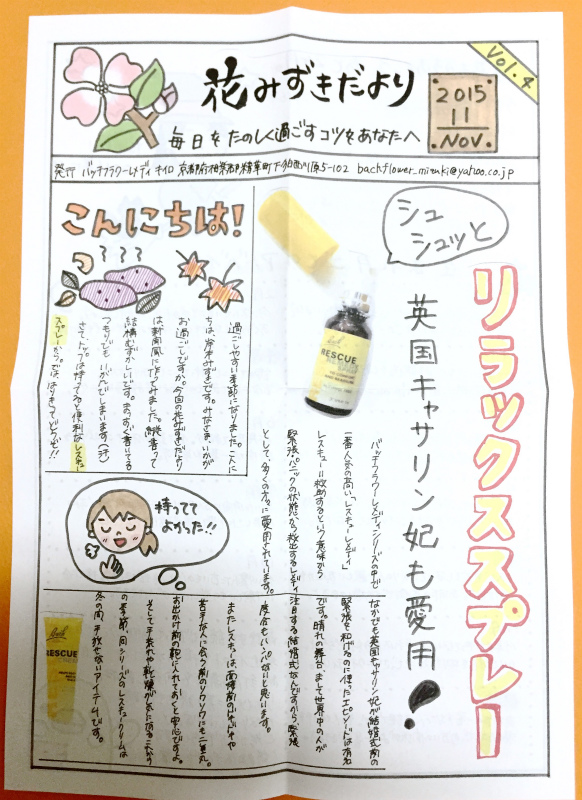 花みずきだより
毎日をたのしく過ごすコツをあなたへ
Vol.4
2015
11
NOV.
発行 バッチフラワーレメディ キイロ 京都府相楽郡精華町下狛 5-102 bachflower_mizuki@yahoo.co.jp
こんにちは!
過ごしやすい季節になりました。こんに
ちは、岸本みずきです。みなさま、いかが
お過ごしですか。今回の花みずきだより
は新聞風に作ってみました。縦書きって
結構むずかしいです。まっすぐ書いてる
つもりでも りがんでしまいます(汗)
さて、トップは持ってると便利なレスキュー
スプレーから。では、はりきってどうぞ!!
シュ
シュッと
リラックススプレー
英国キャサリン妃も愛用!
RESCUE
バッチフラワーレメディシリーズの中で
一番人気の高い「レスキューレメディ」
レスキュー=救助するという意味から
緊張、パニックの状態から救出するレメディ
として、多くの方々に愛用されています。
持ってて
よかった!!
なかでも英国キャサリン妃が結婚式前の
緊張を和げるのに使ったエピソードは有名
です。晴れの舞台、まして世界中の人が
注目する結婚式なんですから、緊張
度合もハンパないと思います。
またレスキューは、面接前のドキドキや
苦手な人に会う前のソワソワにも二重丸。
お出かけ前の鞄に入れておくと安心ですよ。
そして手荒れや乾燥が気になるこれから
の季節、同シリーズのレスキュークリームは
冬の間、手放せないアイテムです。
Bach
RESCUE